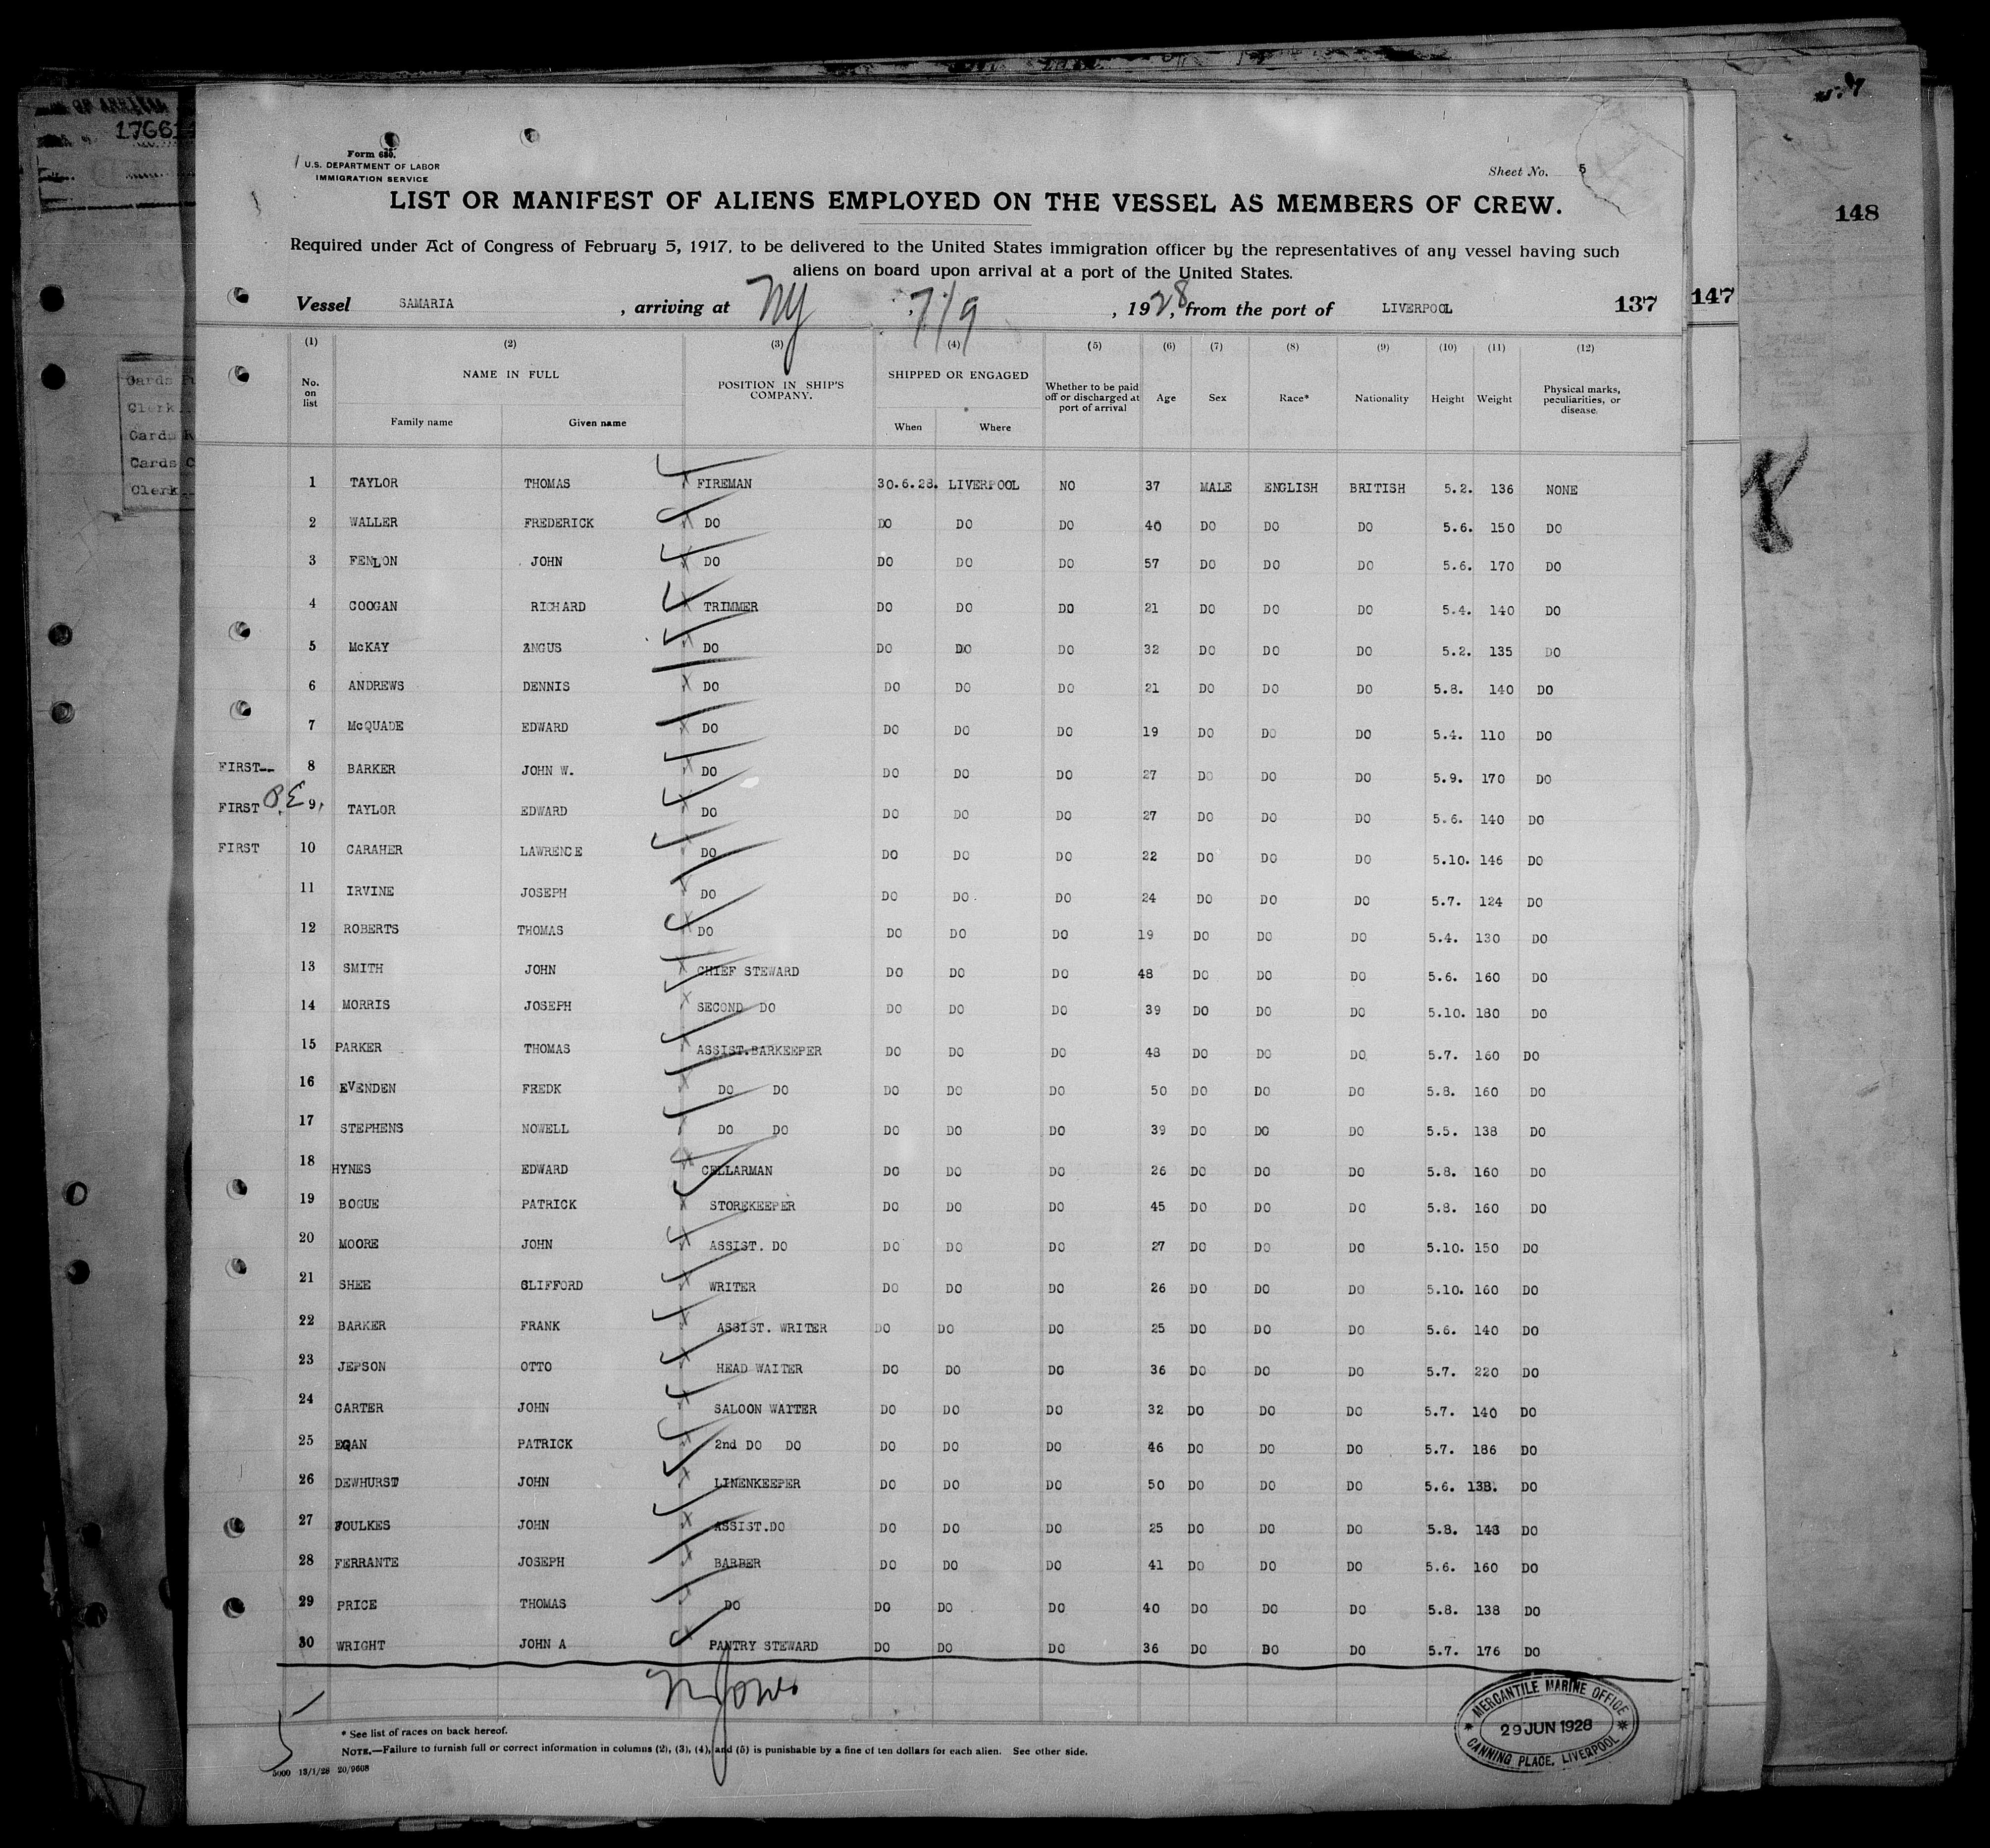 OF ARRIVAL
17661
Form 680.
U.S. DEPARTMENT OF LABOR
IMMIGRATION SERVICE
Sheet No. 5
148
LIST OR MANIFEST OF ALIENS EMPLOYED ON THE VESSEL AS MEMBERS OF CREW.
Required under Act of Congress of February 5, 1917, to be delivered to the United States immigration officer by the representatives of any vessel having such
aliens on board upon arrival at a port of the United States.
Vessel SAMARIA, arriving at NY, 7/9, 1928, from the port of LIVERPOOL 137 147
(1) (2) (3) (4) (5) (6) (7) (8) (9) (10) (11) (12)
No. on list NAME IN FULL Family name Given name POSITION IN SHIP'S COMPANY. SHIPPED OR ENGAGED When Where Whether to be paid off or discharged at port of arrival Age Sex Race* Nationality Height Weight Physical marks, peculiarities, or disease.
Cards
Clerk
Cards
Cards
Clerk
1 TAYLOR THOMAS FIREMAN 30.6.28. LIVERPOOL NO 37 MALE ENGLISH BRITISH 5.2. 136 NONE
2 WALLER FREDERICK DO DO DO DO 40 DO DO DO 5.6. 150 DO
3 FENLON JOHN DO DO DO DO 57 DO DO DO 5.6. 170 DO
4 COOGAN RICHARD TRIMMER DO DO DO 21 DO DO DO 5.4. 140 DO
5 McKAY ANGUS DO DO DO DO 32 DO DO DO 5.2. 135 DO
6 ANDREWS DENNIS DO DO DO DO 21 DO DO DO 5.8. 140 DO
7 McQUADE EDWARD DO DO DO DO 19 DO DO DO 5.4. 110 DO
FIRST-- 8 BARKER JOHN W. DO DO DO DO 27 DO DO DO 5.9. 170 DO
FIRST 9 TAYLOR EDWARD DO DO DO DO 27 DO DO DO 5.6. 140 DO
FIRST 10 CARAHER LAWRENCE DO DO DO DO 22 DO DO DO 5.10. 146 DO
11 IRVINE JOSEPH DO DO DO DO 24 DO DO DO 5.7. 124 DO
12 ROBERTS THOMAS DO DO DO DO 19 DO DO DO 5.4. 130 DO
13 SMITH JOHN CHIEF STEWARD DO DO DO 48 DO DO DO 5.6. 160 DO
14 MORRIS JOSEPH SECOND DO DO DO DO 39 DO DO DO 5.10. 180 DO
15 PARKER THOMAS ASSIST.BARKEEPER DO DO DO 48 DO DO DO 5.7. 160 DO
16 EVENDEN FREDK DO DO DO DO DO 50 DO DO DO 5.8. 160 DO
17 STEPHENS NOWELL DO DO DO DO DO 39 DO DO DO 5.5. 138 DO
18 HYNES EDWARD CELLARMAN DO DO DO 26 DO DO DO 5.8. 160 DO
19 BOGUE PATRICK STOREKEEPER DO DO DO 45 DO DO DO 5.8. 160 DO
20 MOORE JOHN ASSIST. DO DO DO DO 27 DO DO DO 5.10. 150 DO
21 SHEE CLIFFORD WRITER DO DO DO 26 DO DO DO 5.10. 160 DO
22 BARKER FRANK ASSIST. WRITER DO DO DO 25 DO DO DO 5.6. 140 DO
23 JEPSON OTTO HEAD WAITER DO DO DO 36 DO DO DO 5.7. 220 DO
24 CARTER JOHN SALOON WAITER DO DO DO 32 DO DO DO 5.7. 140 DO
25 EGAN PATRICK 2nd DO DO DO DO DO 46 DO DO DO 5.7. 186 DO
26 DEWHURST JOHN LINENKEEPER DO DO DO 50 DO DO DO 5.6. 138. DO
27 FOULKES JOHN ASSIST.DO DO DO DO 25 DO DO DO 5.8. 148 DO
28 FERRANTE JOSEPH BARBER DO DO DO 41 DO DO DO 5.6. 160 DO
29 PRICE THOMAS DO DO DO DO 40 DO DO DO 5.8. 138 DO
30 WRIGHT JOHN A PANTRY STEWARD DO DO DO 36 DO DO DO 5.7. 176 DO
MERCANTILE MARINE OFFICE
29 JUN 1928
CANNING PLACE, LIVERPOOL
5
* See list of races on back hereof.
NOTE.—Failure to furnish full or correct information in columns (2), (3), (4), and (5) is punishable by a fine of ten dollars for each alien. See other side.
5000 13/1/28 20/9608